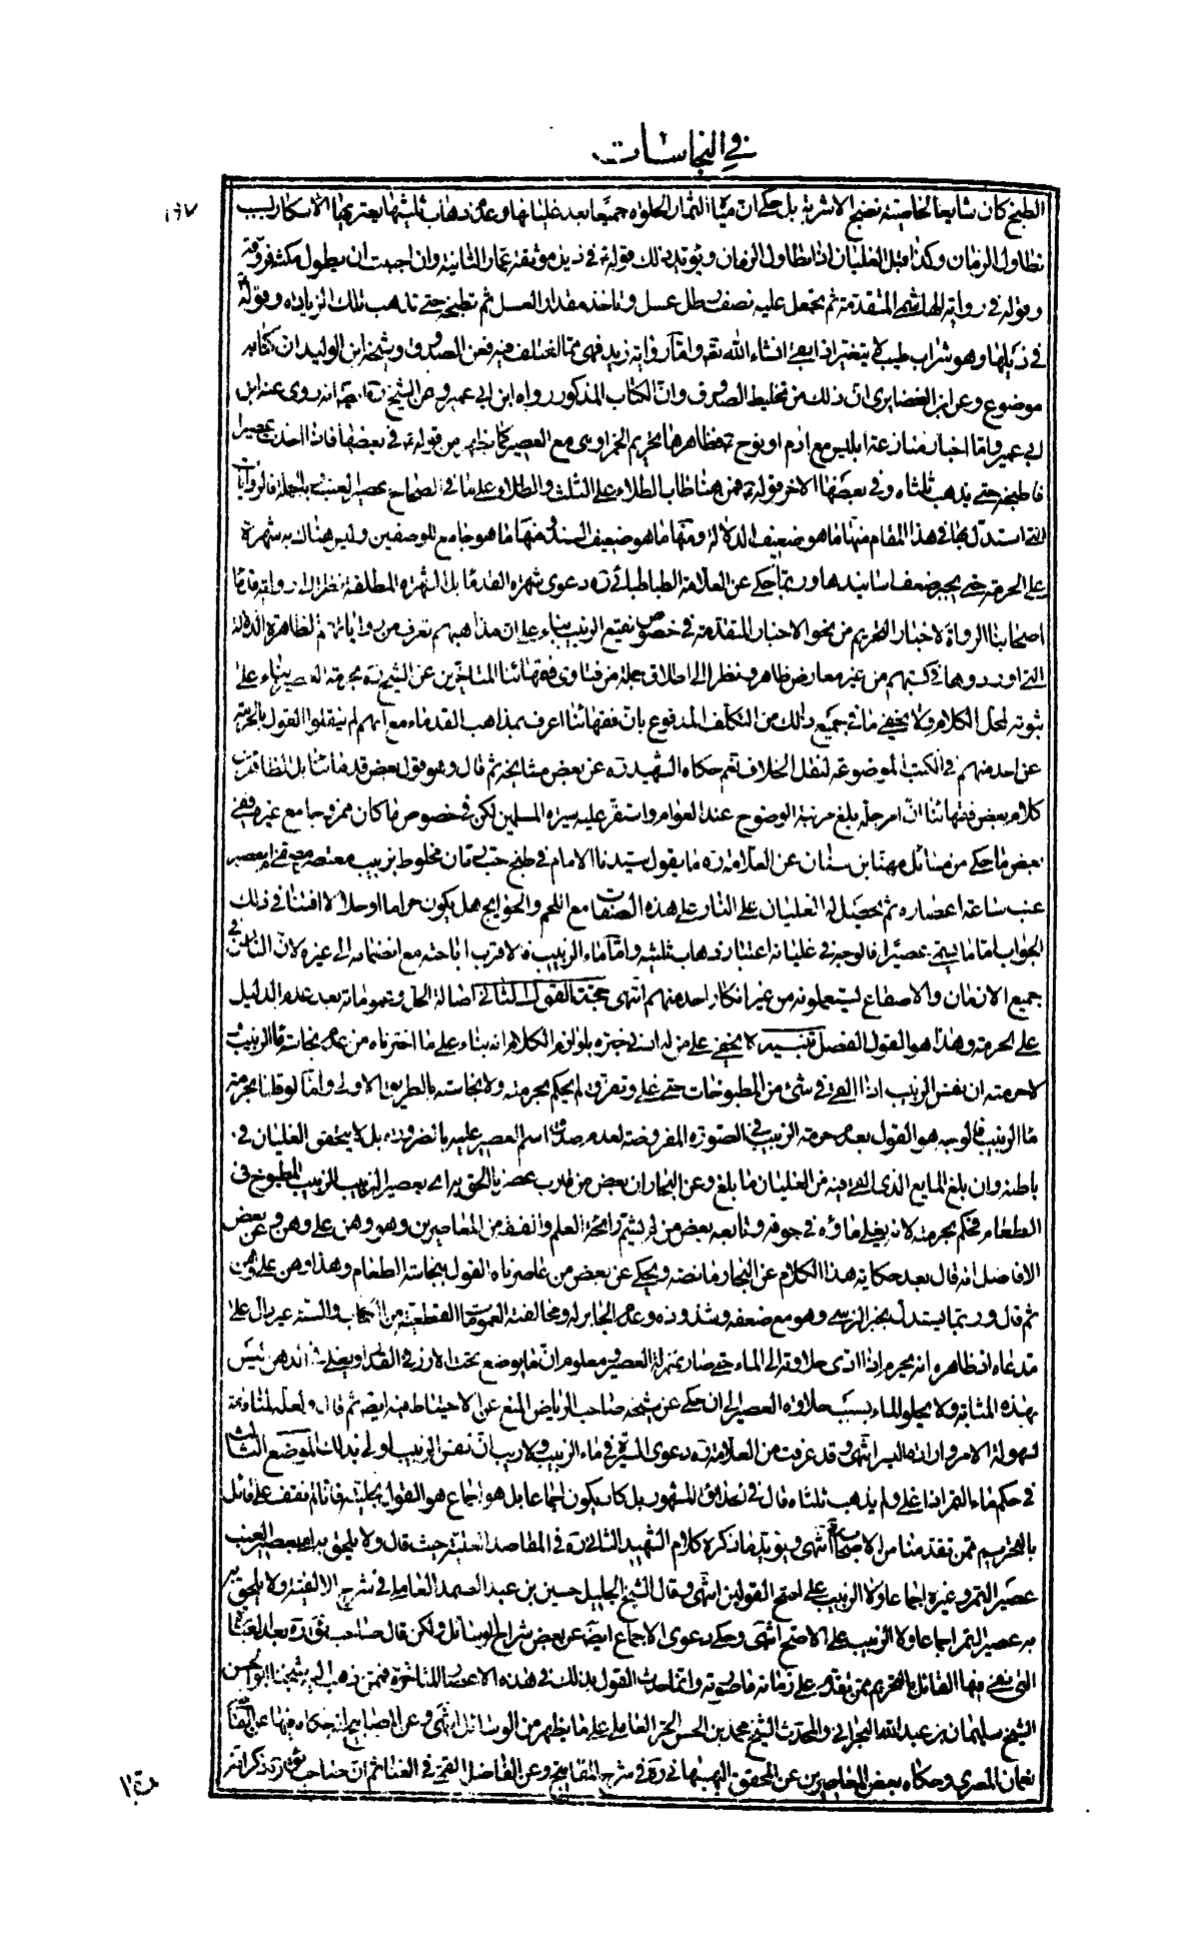 في النجاسات
١٦٧
الطبخ كان شايعا لخاصيته نضج الاشربة بل حكى ان مياه الثمار الحلوة جميعا بعد غليانها وعدم ذهاب ثلثيها يعتريها الاسكار بسبب
تطاول الزمان وكذا قبل الغليان اذا تطاول الزمان ويؤيد ذلك قوله في ذيل موثقة عمار الثانية وان احببت ان يطول مكثه فروقه
وقوله في رواية الهاشمي المتقدمة ثم تجعل عليه نصف رطل عسل وتاخذ مقدار العسل ثم تطبخه حتى تذهب تلك الزيادة وقوله
في ذيلها وهو شراب طيب لا يتغير اذا بقى انشاء الله تعالى واما رواية زيد فهي مما اختلف فيه فعن الصدوق وشيخه ابن الوليد ان كتابه
موضوع وعن ابن الغضايري ان ذلك من تخليط الصدوق وان الكتاب المذكور رواه ابن ابي عمير وعن الشيخ ره ايضا انه روى عنه ابن
ابي عمير واما اخبار منازعة ابليس مع ادم او نوح فظاهرها تحريم الخمر اوهى مع العصير كما يظهر من قوله في بعضها فاذا اخذت عصيرا
فاطبخه حتى يذهب ثلثاه وفي بعضها الاخر قوله فمن هنا طاب الطلاء على الثلث والطلاء على ما في الصحاح عصير العنب بالجملة فالروايات
التي استدل بها في هذا المقام منها ما هو ضعيف الدلالة ومنها ما هو ضعيف السند ومنها ما هو جامع للوصفين وليس هناك شهرة
على الحرمة حتى يجبر ضعف اسانيدها وربما حكى عن العلامة الطباطبائي ره دعوى شهرة القدماء بل الشهرة المطلقة نظرا الى رواية قدماء
اصحابنا الرواة لاخبار التحريم من نحو الاخبار المتقدمة في خصوص نقيع الزبيب بناء على ان مذاهبهم تعرف من رواياتهم الظاهرة الدلالة
التي اوردوها في كتبهم من غير معارض ظاهر ونظرا الى اطلاق جملة من فتاوى فقهائنا المتاخرين عن الشيخ ره بحرمة العصير بناء على
ثبوته لمحل الكلام ولا يخفى ما في جميع ذلك من التكلف المدفوع بان فقهائنا اعرف بمذاهب القدماء مع انهم لم ينقلوا القول بالحرمة
عن احد منهم في الكتب الموضوعة لنقل الخلاف نعم حكاه الشهيد ره عن بعض مشايخه ثم قال وهو قول بعض قدمائنا بل الظاهر من
كلام بعض فقهائنا ان امر حله بلغ مرتبة الوضوح عند العوام واستقر عليه سيرة المسلمين لكن في خصوص ما كان ممزوجا مع غيره ففي
بعض ما حكى من مسائل مهنا بن سنان عن العلامة ره ما يقول سيدنا الامام في طبخ حب رمان مخلوط بزبيب معتصر معه في عصير
عنب ساعة اعصاره ثم يحصل له الغليان على النار على هذه الصفات مع اللحم والحوايج هل يكون حراما او حلالا افتنا في ذلك
الجواب اما ما يسمى عصيرا فالوجه في غليانه اعتبار ذهاب ثلثيه واما ماء الزبيب فالاقرب اباحته مع انضمامه الى غيره لان الناس في
جميع الازمان والاصقاع يستعملونه من غير انكار احد منهم انتهى حجة القول الثاني اصالة الحل وعموماته بعد عدم الدليل
على الحرمة وهذا هو القول الفصل تنبيه لا يخفى على من له ادنى خبرة بلوازم الكلام انه بناء على ما اخترناه من عدم نجاسة ماء الزبيب
لا حرمته ان نفس الزبيب اذا القى في شئ من المطبوخات حتى غلى وتهرى لم يحكم بحرمته ولا نجاسته بالطريق الاولى واما لو قلنا بحرمة
ماء الزبيب فالوجه هو القول بعدم حرمة الزبيب في الصورة المفروضة لعدم صدق اسم العصير عليه بالضرورة بل لا يتحقق الغليان في
باطنه وان بلغ المايع الذي القى فيه من الغليان ما بلغ وعن البحار ان بعض من قارب عصرنا الحق به اى بعصير الزبيب الزبيب المطبوخ في
الطعام فحكم بحرمته لانه يغلي ماؤه في جوفه وتابعه بعض من لم يشم رايحة العلم والفقه من المعاصرين وهو وهن على وهن وعن بعض
الافاضل انه قال بعد حكاية هذا الكلام عن البحار ما نصه ويحكى عن بعض من عاصرناه القول بنجاسة الطعام وهذا وهن على وهن
ثم قال وربما يستدل بخبر النرسي وهو مع ضعفه وشذوذه وعدم الجابر له ومخالفته العمومات القطعية من الكتاب والسنة غير دال على
مدعاه اذ ظاهره انه يحرم اذا ادى حلاوته الى الماء حتى صار بمنزلة العصير ومعلوم ان ما يوضع تحت الارز في القدر او يغلى في الدهن ليس
بهذه المثابة ولا يحلو الماء بسبب حلاوة العصير الى ان حكى عن شيخه صاحب الرياض المنع عن الاحتياط فيه ايضا ثم قال ولعله لمنافاته
لسهولة الامر وارادة اليسر انتهى وقد عرفت من العلامة ره دعوى السيرة في ماء الزبيب ولا ريب ان نفس الزبيب اولى بذلك الموضع الثالث
في حكم ماء التمر اذا غلى ولم يذهب ثلثاه قال في الحدائق المشهور بل كاد يكون اجماعا بل هو اجماع هو القول بحليته فانا لم نقف على قائل
بالتحريم ممن تقدمنا من الاصحاب انتهى ويؤيد ما ذكره كلام الشهيد الثاني ره في المقاصد العلية حيث قال ولا يلحق به اى بعصير العنب
عصير التمر وغيره اجماعا ولا الزبيب على اصح القولين انتهى وقال الشيخ الجليل حسين بن عبد الصمد العاملي في شرح الالفية ولا يلحق به
به عصير التمر اجماعا ولا الزبيب على الاصح انتهى وحكى دعوى الاجماع ايضا عن بعض شراح الوسائل ولكن قال صاحب ئق ره بعد العبارة
التي نفى فيها القائل بالتحريم ممن تقدم على زمانه ما صورته وانما حدث القول بذلك في هذه الاعصار المتاخرة فممن ذهب اليه شيخنا ابو الحسن
الشيخ سليمان بن عبد الله البحراني والمحدث الشيخ محمد بن الحسن الحر العاملي على ما يظهر من الوسائل انتهى وعن المصابيح انه حكاه فيها عن القاضى
نعمان المصري وحكاه بعض المعاصرين عن المحقق البهبهاني ره في شرح المفاتيح وعن الفاضل القمي في الغنائم ثم ان صاحب ئق ره ذكر انه